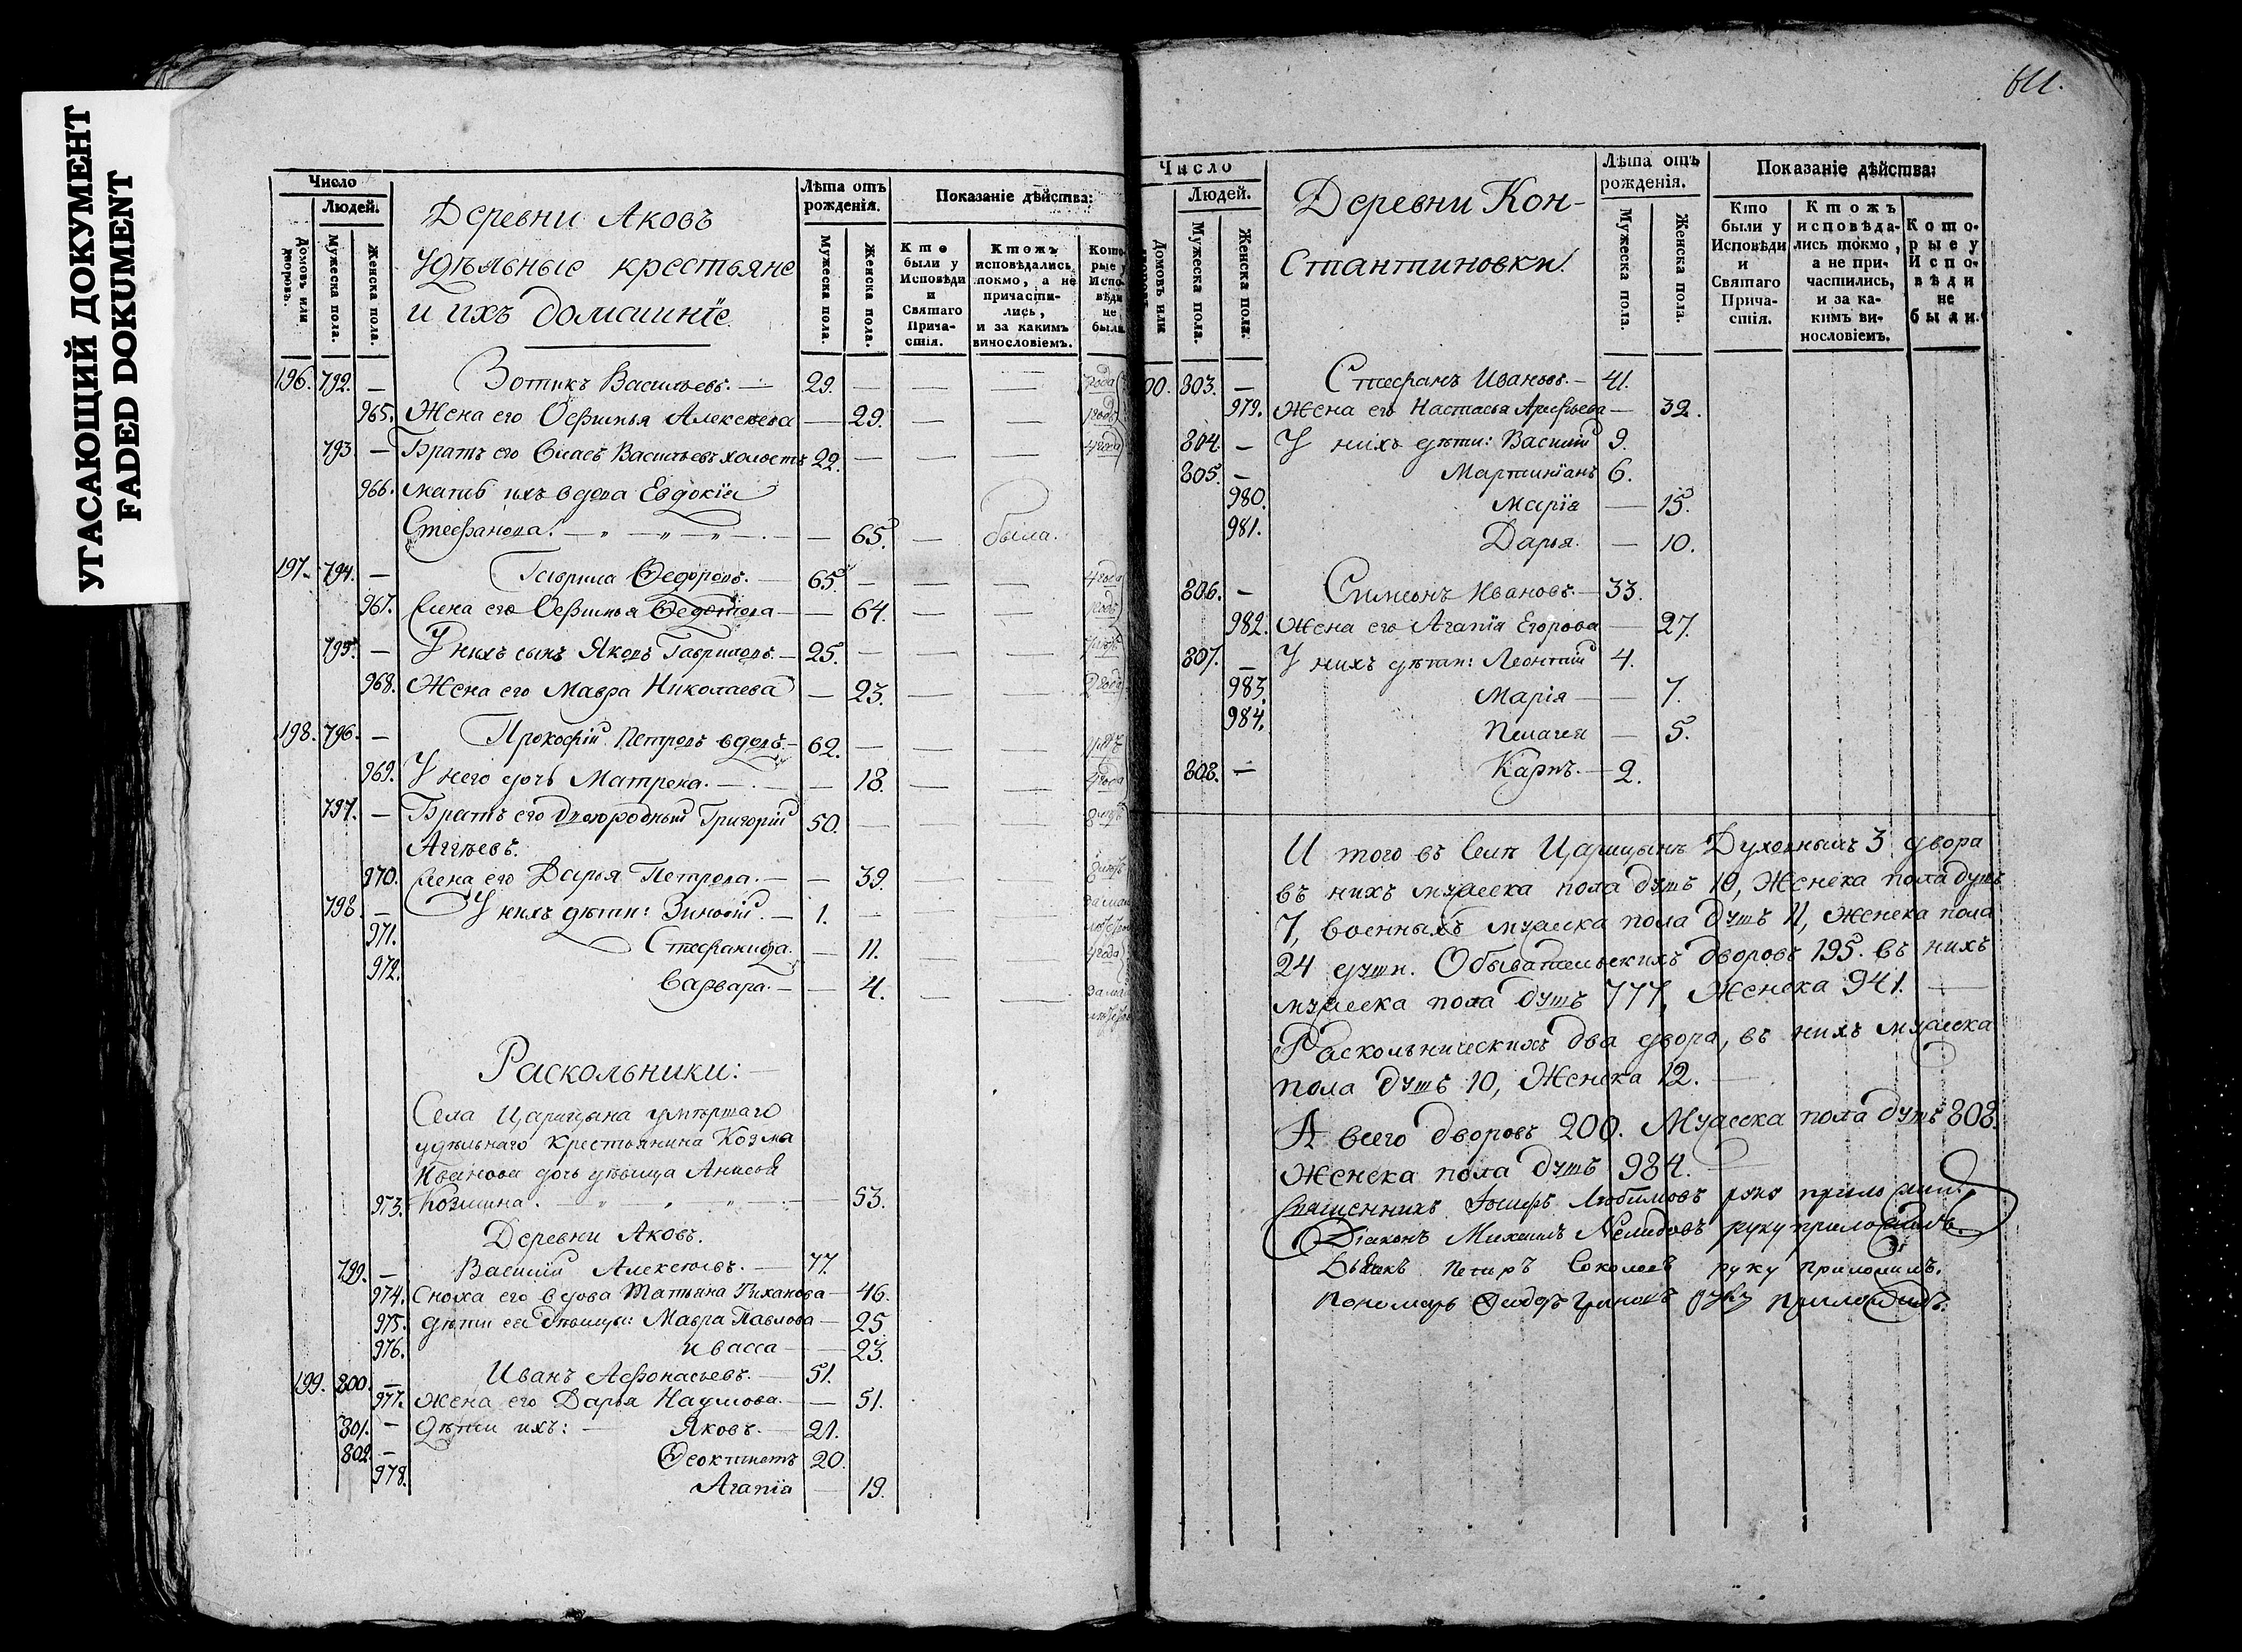 УГАСАЮЩИЙ ДОКУМЕНТ
FADED DOKUMENT
Число
Людей.
Домовъ или дворовъ.
Мужеска пола.
Женска пола.
Деревни Аковъ
удѣльные крестьяне
и ихъ домашнїе.
Лѣта отъ рожденїя.
Мужеска пола.
Женска пола.
Показанїе дѣйства:
Кто были у Исповѣди и Святаго Прича- стїя.
Ктожъ исповѣдались токмо, а не причасти- лись, и за какимъ винословїемъ.
Кото- рые у Испо- вѣди не были.
196. 792. — Зотикъ Васильевъ. — 29. — — —
965. Жена его Офимья Алексѣева — 29. — —
793 — Братъ его Власъ Васильевъ холостъ 22. — — —
966. мать ихъ вдова Евдокїя
Стефанова. — „ — „ — „ — — 65. — была.
197. 794. — Гаврила Ѳедоровъ. — 65. — — — 4 года
967. Жена его Офимья Ѳедотова — — 64. — —
795. — У нихъ сынъ Яковъ Гавриловъ. — 25. — — —
968. Жена его Мавра Николаева — 23. — — 2 года
198. 796. — Прокофїй Петровъ вдовъ. — 62. — — —
969. У него дочь Матрена. — — 18. — —
797. — Братъ его двоюродный Григорїй 50. — — —
Аггѣевъ.
970. Жена его Дарья Петрова. — — 39. — —
798 — У нихъ дѣти: Зиновїй. — 1. — — —
971. Стефанида. — 11. — —
972. Варвара. — — 4. — —
Раскольники: —
Села Царицына умершаго
удѣльнаго крестьянина Козма
Иванова дочь дѣвица Анисья
973. Козмина. — „ — „ — „ — — 53.
Деревни Аковъ.
799. — Василїй Алексѣевъ. — 77.
974. Сноха его вдова Татьяна Тиханова — 46.
975. дѣти ея дѣвицы: Мавра Павлова — 25
976. и васса — — 23.
199. 800. — Иванъ Афонасьевъ. — 51.
977. Жена его Дарья Наумова. — — 51.
801. — Дѣти ихъ: — Яковъ. — 21.
802. — Ѳеоктистъ 20.
978. Агапїя — 19.
Число
Людей.
Домовъ или
Мужеска пола.
Женска пола.
Деревни Кон-
стантиновки.
Лѣта отъ рожденїя.
Мужеска пола.
Женска пола.
Показанїе дѣйства:
Кто были у Исповѣди и Святаго Прича- стїя.
Ктожъ исповѣда- лись токмо, а не при- частились, и за ка- кимъ ви- нословїемъ.
Кото- рые у Испо- вѣди не были.
00. 803. — Стефанъ Ивановъ. — 41.
979. Жена его Настасья Арефьева — 32.
804. — У нихъ дѣти: Василїй 9.
805. — Мартинїанъ 6.
980. Марїя — 15.
981. Дарья. — 10.
806. — Симеонъ Ивановъ. — 33.
982. Жена его Агапїя Егорова — 27.
807. — У нихъ дѣти: Леонтїй 4.
983. Марїя — — 7.
984. Пелагея — 5.
808. — Карпъ. — 2.
И того въ Селѣ Царицынѣ Духовныхъ 3 двора
въ нихъ мужеска пола душъ 10, Женска пола душъ
7, военныхъ мужеска пола душъ 11, Женска пола
24 души. Обывательскихъ дворовъ 195. въ нихъ
мужеска пола душъ 777, Женска 941. —
Раскольническихъ два двора, въ нихъ мужеска
пола душъ 10, Женска 12. —
А всего дворовъ 200. Мужеска пола душъ 808.
Женска пола душъ 984. —
Священникъ Іосифъ Любимовъ руку приложилъ.
Дїаконъ Михаилъ Нелидовъ руку приложилъ.
Дьячекъ Петръ Соколовъ руку приложилъ.
Пономарь Ѳедоръ руку приложилъ.